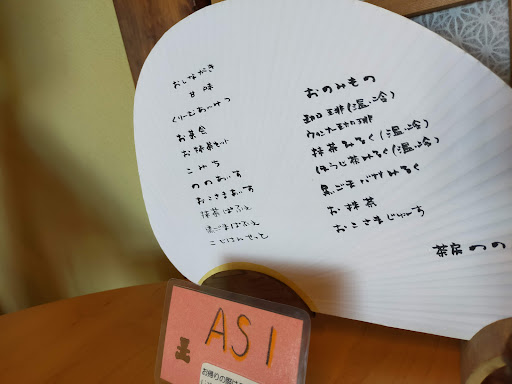 おしながき
甘味
くりーむあんみつ
お抹茶セット
こみち
ののあいす
おこさまあいす
抹茶ぱふぇ
黒ごまぱふぇ
おのみもの
珈琲(温・冷)
ウィンナー珈琲
抹茶みるく(温・冷)
ほうじ茶みるく(温・冷)
黒ごまバナナみるく
お抹茶
茶房のの
AS1
お帰りの際は